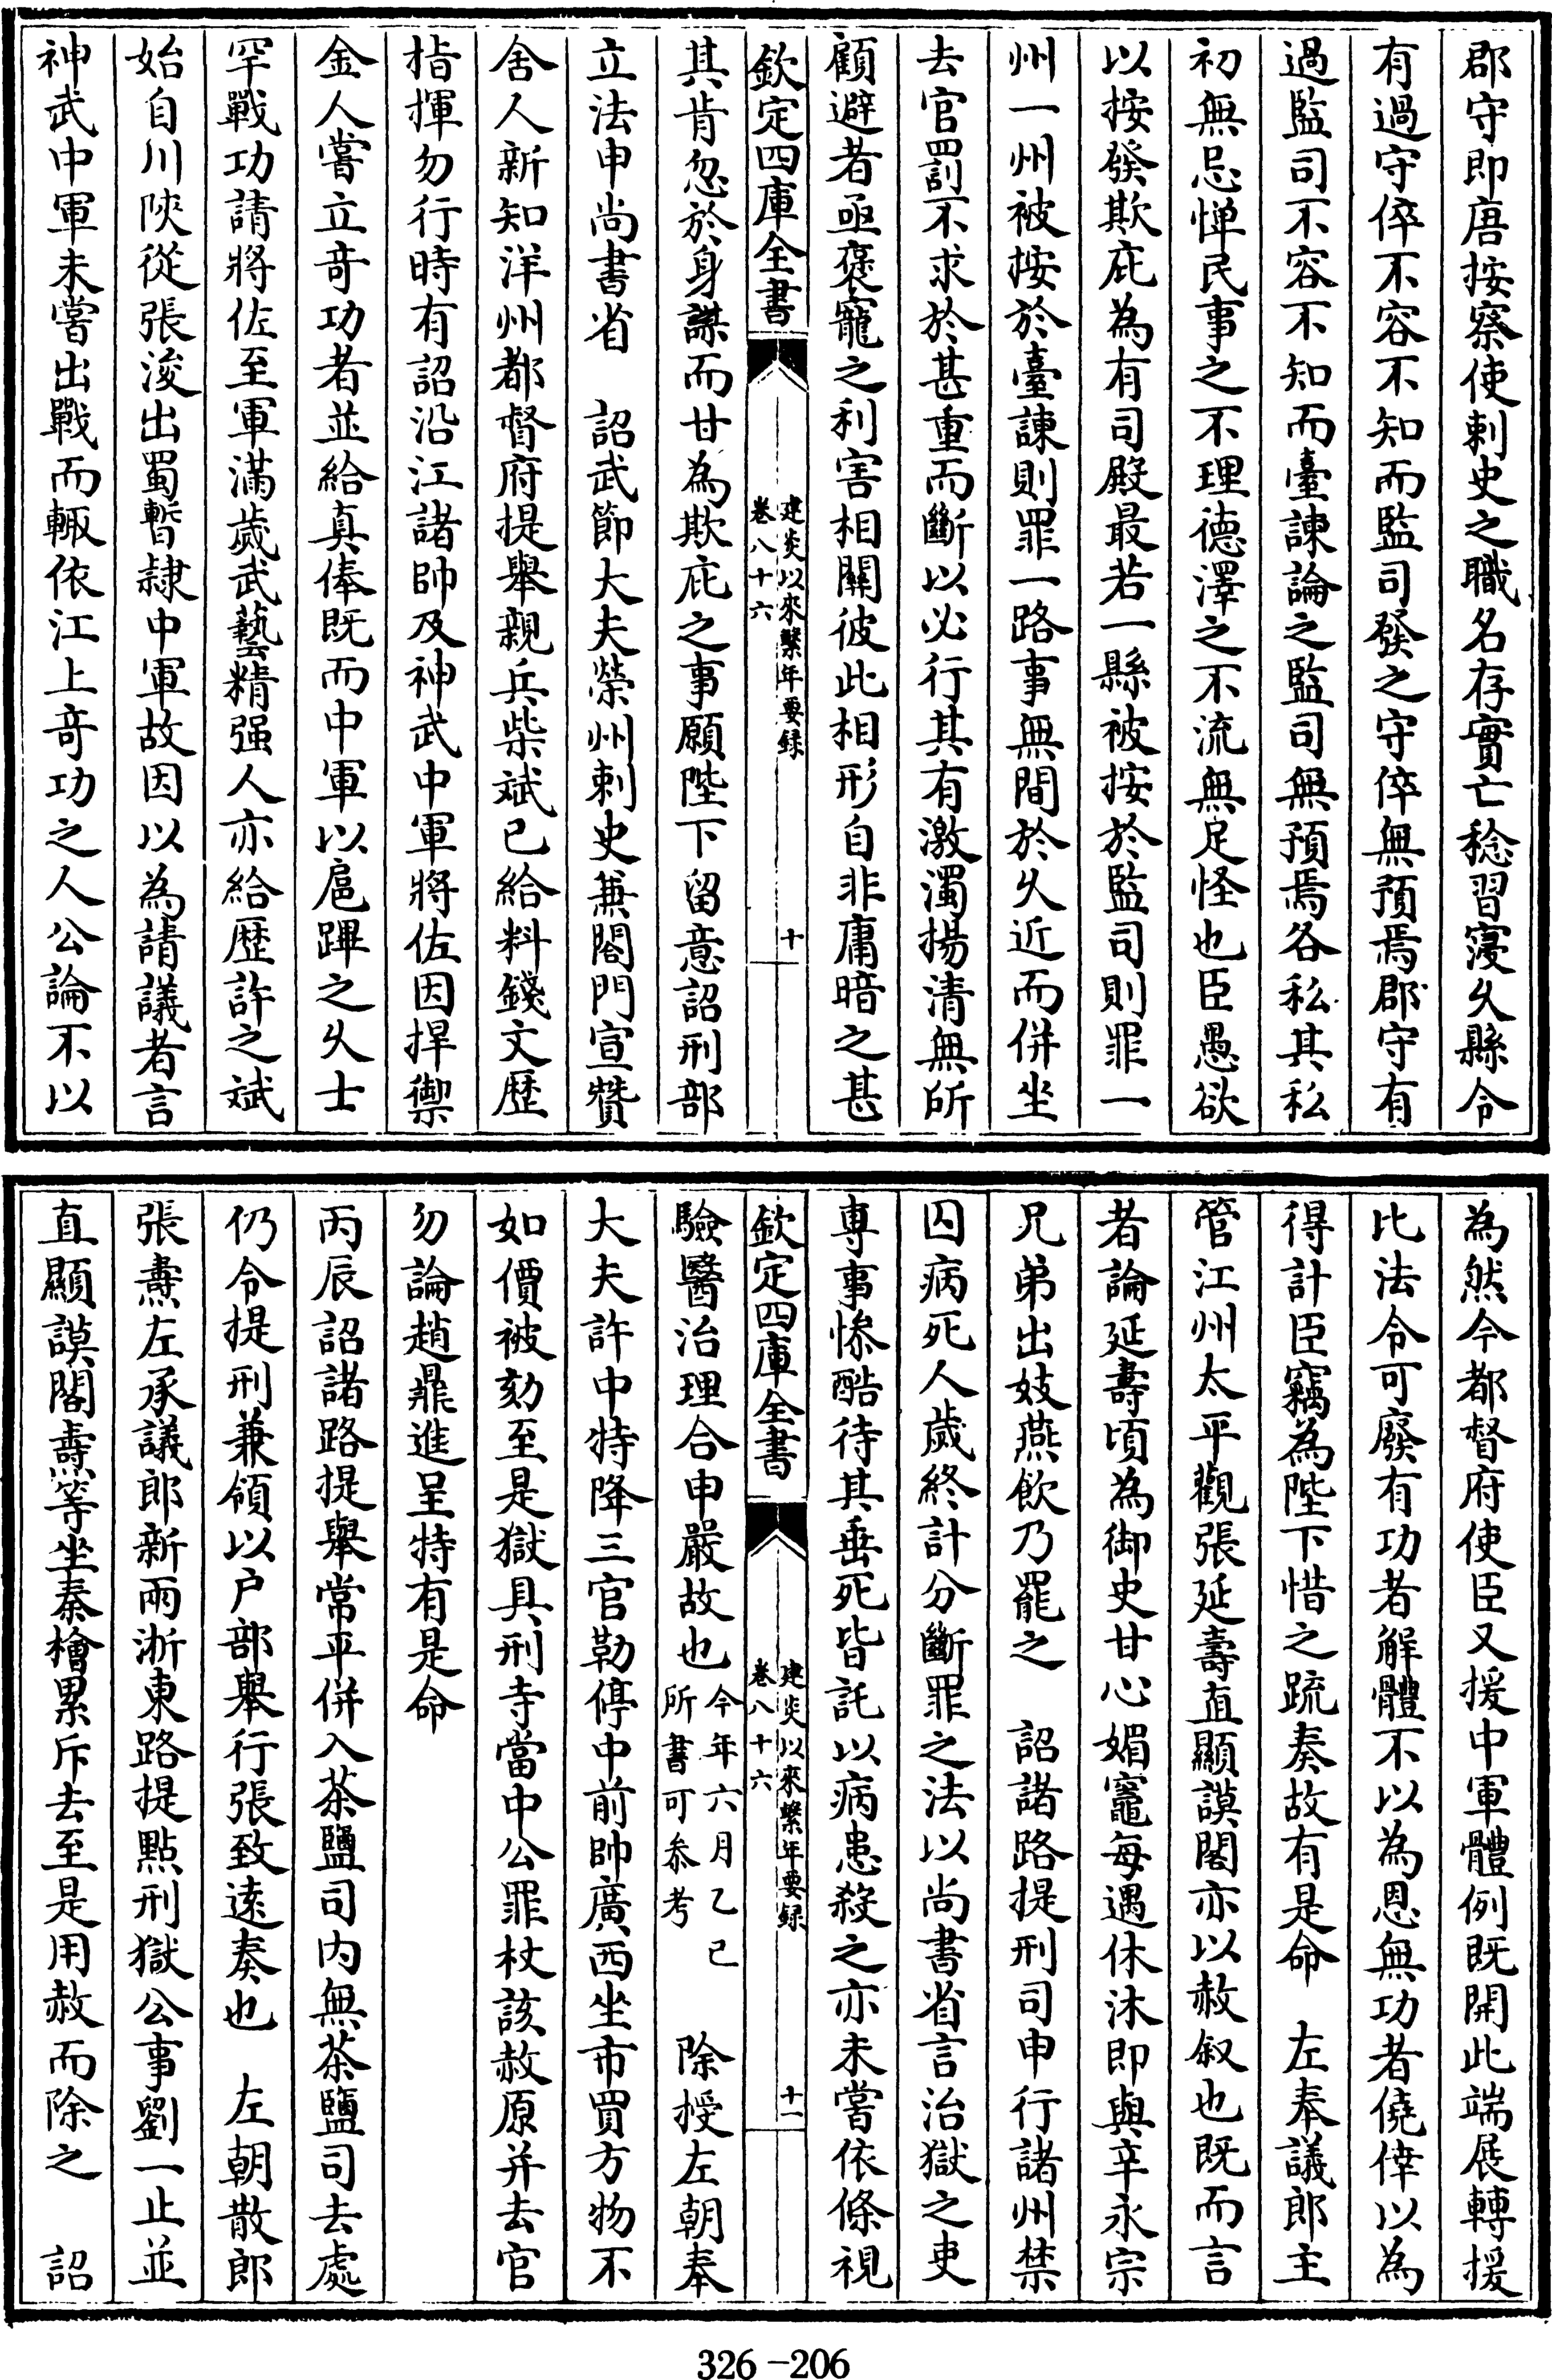 郡守即唐按察使刺史之職名存實亡稔習寖久縣令
有過守倅不容不知而監司發之守倅無預焉郡守有
過監司不容不知而臺諫論之監司無預焉各私其私
初無忌憚民事之不理德澤之不流無足怪也臣愚欲
以按發欺庇為有司殿最若一縣被按於監司則罪一
州一州被按於臺諫則罪一路事無間於久近而併坐
去官罰不求於甚重而斷以必行其有激濁揚清無所
顧避者亟褒寵之利害相關彼此相形自非庸暗之甚
欽定四庫全書
建炎以來繫年要録
卷八十六
十
其肯忽於身謀而甘為欺庇之事願陛下留意詔刑部
立法申尚書省　詔武節大夫榮州刺史兼閤門宣贊
舍人新知洋州都督府提舉親兵柴斌已給料錢文歷
指揮勿行時有詔沿江諸帥及神武中軍將佐因捍禦
金人嘗立竒功者並給真俸既而中軍以扈蹕之久士
罕戰功請將佐至軍滿歲武藝精强人亦給歴許之斌
始自川陜從張浚出蜀暫隸中軍故因以為請議者言
神武中軍未嘗出戰而輙依江上竒功之人公論不以
為然今都督府使臣又援中軍體例既開此端展轉援
比法令可廢有功者解體不以為恩無功者僥倖以為
得計臣竊為陛下惜之疏奏故有是命　左奉議郎主
管江州太平觀張延壽直顯謨閣亦以赦叙也既而言
者論延壽頃為御史甘心媚竈每遇休沐即與辛永宗
兄弟出妓燕飲乃罷之　詔諸路提刑司申行諸州禁
囚病死人歲終計分斷罪之法以尚書省言治獄之吏
專事慘酷待其垂死皆託以病患殺之亦未嘗依條視
欽定四庫全書
建炎以來繫年要録
卷八十六
十一
驗醫治理合申嚴故也今年六月乙巳所書可叅考　除授左朝奉
大夫許中特降三官勒停中前帥廣西坐市買方物不
如價被劾至是獄具刑寺當中公罪杖該赦原并去官
勿論趙鼎進呈特有是命
丙辰詔諸路提舉常平併入茶鹽司内無茶鹽司去處
仍令提刑兼領以户部舉行張致逺奏也　左朝散郎
張燾左承議郎新兩浙東路提點刑獄公事劉一止並
直顯謨閣燾等坐秦檜累斥去至是用赦而除之　詔
326-206